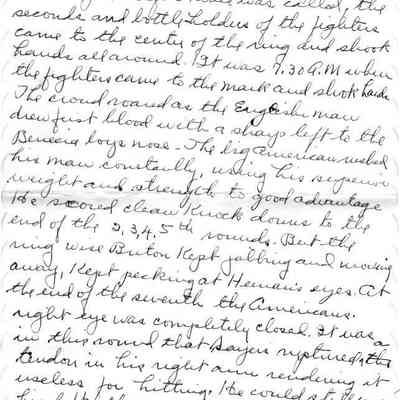 was called, the
seconds and bottle holders of the fighters
came to the center of the ring and shook
hands all around. It was 7.30 A.M when
the fighters came to the mark and shook hands
The crowd roared as the Englishman
drew first blood with a sharp left to the
Benecia boys nose - The big American rushed
his man constantly, using his superior
weight and strength to good advantage
He scored clean Knock downs to the
end of the 2,3,4,5th rounds. But the
ring wise Briton Kept jabbing and moving
away, Kept pecking at Heenan's eyes. At
the end of the seventh the Americans.
right eye was completely closed. It was
in this round that Sayers ruptured the
tendon in his right arm rendering it
useless for hitting. He could